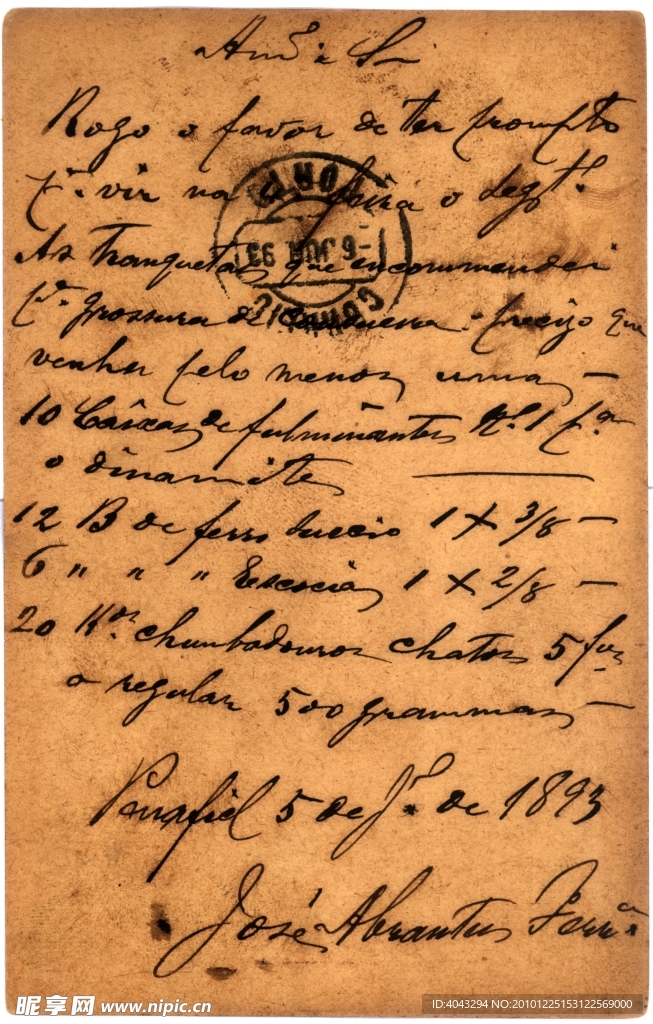 Am.º e Sr
Rogo o favor de ter prompto
p.ª vir na feira o segt.e
As tranquetas que encommendei
p.ª grossura de precizo que
venha pelo menos uma —
10 Caixas de fulminantes N.º 1 p.ª
o dinamite
12 B de ferro suecio 1 X 3/8 —
6 " " " Escocia 1 X 2/8 —
20 K.os chumbadouros chatos 5
a regular 500 grammas —
Penafiel 5 de J.º de 1893
José Abrantes Ferr.ª
PORTO
6 JUN 93
昵享网 www.nipic.cn
ID:4043294 NO:20101225153122569000